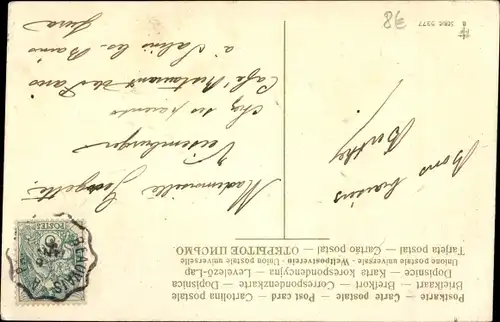 Postkarte — Carte postale — Post card — Cartolina postale
Briefkaart — Brefkort — Correspondenzkarte — Dopisnica
Dopisnice — Karta korespondencyjna — Levelező-Lap
Unione postale universale — Weltpostverein — Union postale universelle
Tarjeta postal — Cartão postal — ОТКРЫТОЕ ПИСЬМО
Mademoiselle Georgette
chez ses parents
Café Restaurant
à Salins les Bains
Jura
Bons baisers
Serie 5377
8€
POSTES